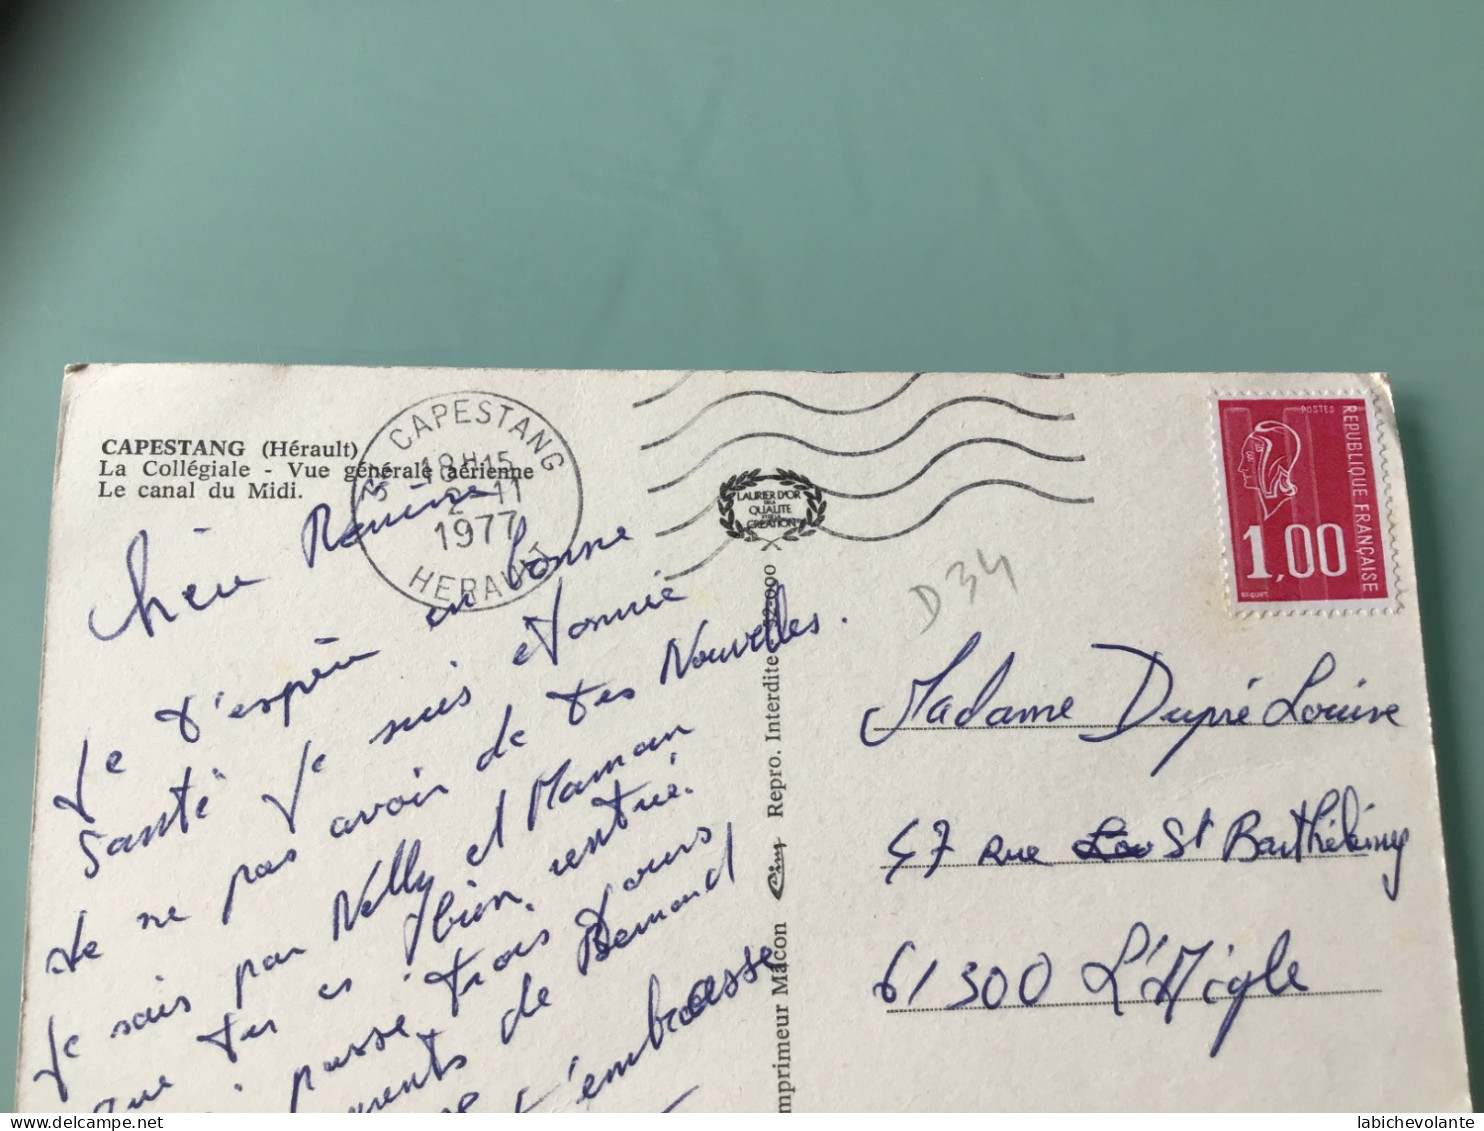 CAPESTANG (Hérault)
La Collégiale - Vue générale aérienne
Le canal du Midi.
CAPESTANG
18H15
2 - 11
1977
HERAULT
LAURIER D'OR
DE LA
QUALITE
CREATION
POSTES
REPUBLIQUE FRANÇAISE
1,00
BEQUET
D34
chère
Je t'espère en bonne
santé je suis etonnié
de ne pas avoir de tes Nouvelles.
Je sais par Nelly et Maman
que tu es bien rentré.
passé trois jours
de Bernard
t'embrasse
Imprimeur Macon Cim Repro. Interdite
Madame Dupré Louise
47 rue St Barthélémy
61300 L'Aigle
labichevolante